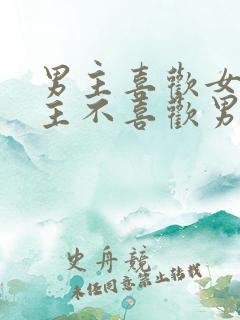 男主喜歡女
主不喜歡男
史舟競
未任同意禁止转载